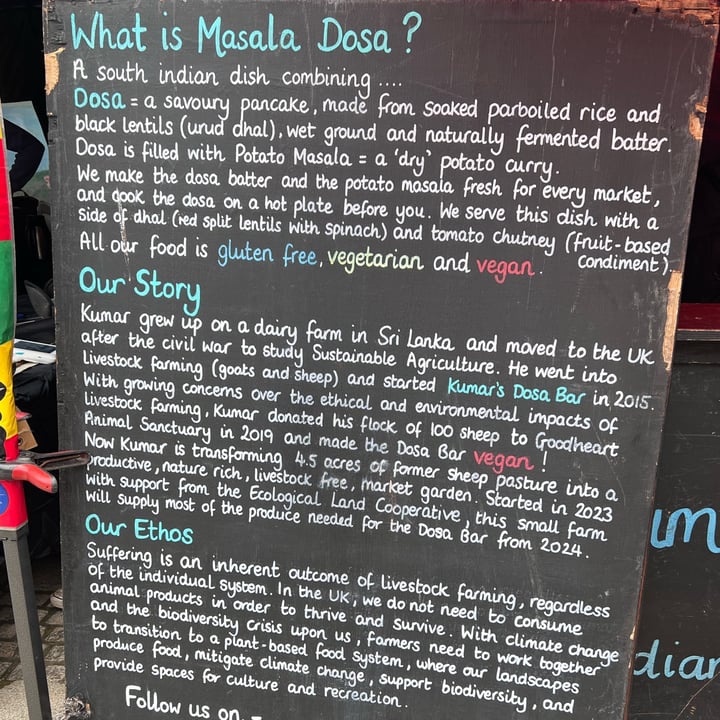 What is Masala Dosa?
A south indian dish combining ....
Dosa = a savoury pancake, made from soaked parboiled rice and
black lentils (urud dhal), wet ground and naturally fermented batter.
Dosa is filled with Potato Masala = a 'dry' potato curry.
We make the dosa batter and the potato masala fresh for every market,
and cook the dosa on a hot plate before you. We serve this dish with a
side of dhal (red split lentils with spinach) and tomato chutney (fruit-based
condiment).
All our food is gluten free, vegetarian and vegan.
Our Story
Kumar grew up on a dairy farm in Sri Lanka and moved to the UK
after the civil war to study Sustainable Agriculture. He went into
livestock farming (goats and sheep) and started Kumar's Dosa Bar in 2015.
With growing concerns over the ethical and environmental impacts of
livestock farming, Kumar donated his flock of 100 sheep to Goodheart
Animal Sanctuary in 2019 and made the Dosa Bar vegan!
Now Kumar is transforming 4.5 acres of former sheep pasture into a
productive, nature rich, livestock free, market garden. Started in 2023
with support from the Ecological Land Cooperative, this small farm
will supply most of the produce needed for the Dosa Bar from 2024.
Our Ethos
Suffering is an inherent outcome of livestock farming, regardless
of the individual system. In the UK, we do not need to consume
animal products in order to thrive and survive. With climate change
and the biodiversity crisis upon us, farmers need to work together
to transition to a plant-based food system, where our landscapes
produce food, mitigate climate change, support biodiversity, and
provide spaces for culture and recreation.
Follow us on
um
dian